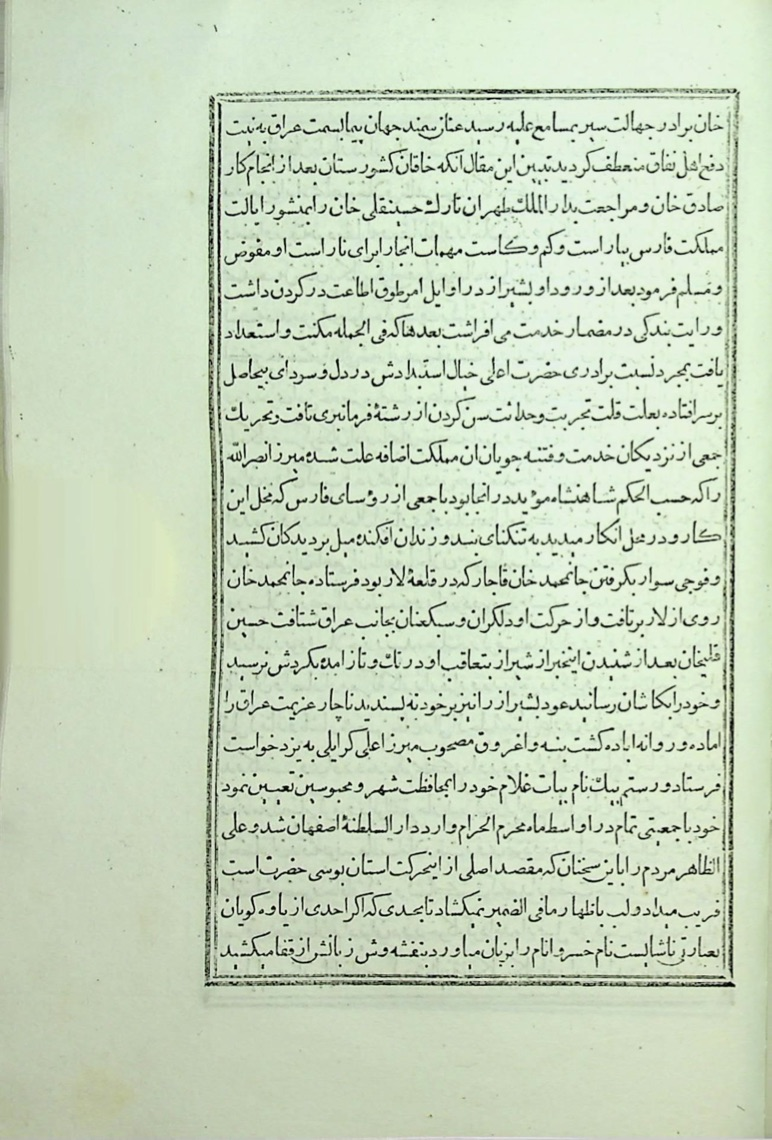 خان برادر جهالت سیر بمسامع علیه رسید عنان سمند جهان پیما بسمت عراق به نیت
دفع اهل نفاق منعطف کردید تبیین این مقال آنکه خاقان کشور ستان بعد از انجام کار
صادق خان و مراجعت بدار الملك طهران تارك حسینقلی خان را بمنشور ایالت
مملکت فارس بیاراست و کم و کاست مهمات انجا را برای ناراست او مفوض
و مسلم فرمود بعد از ورود او بشیراز در اوایل امر طوق اطاعت در کردن داشت
و رایت بندکی در مضمار خدمت می افراشت بعدها که فی الجمله مکنت و استعداد
یافت بمجرد نسبت برادری حضرت اعلی خیال استبدادش در دل و سودای بیحاصل
بر سر افتاده بعلت قلت تجربت و حداثت سن کردن از رشتۀ فرمانبری تافت و تحریك
جمعی از نزدیکان خدمت و فتنه جویان ان مملکت اضافه علت شده میرزا نصر الله
را که حسب الحکم شاهنشاه مؤید در انجا بود با جمعی از رؤسای فارس که مخل این
کار و در محل انکار میدید به تنکنای بند و زندان افکنده میل بر دیدکان کشید
و فوجی سوار بکرفتن جانمحمد خان قاجار که در قلعۀ لار بود فرستاده جانمحمد خان
روی از لار بر تافت و از حرکت او دلکران و سبکعنان بجانب عراق شتافت حسین
قلیخان بعد از شنیدن اینخبر از شیراز بتعاقب او در تك و تاز امده بکردش نرسید
و خود را بکاشان رسانید عود بشیراز را نیز بر خود نه پسندید ناچار عزیمت عراق را
اماده و روانه اباده کشت بنه و اغروق مصحوب میرزا علی کرایلی به یزد خواست
فرستاد و رستم بیك نام بیات غلام خود را بمحافظت شهر و محبوسین تعیین نمود
خود با جمعیتی تمام در اواسط ماه محرم الحرام وارد دار السلطنۀ اصفهان شد و علی
الظاهر مردم را باین سخنان که مقصد اصلی از اینحرکت استان بوسی حضرت است
فریب میداد و لب باظهار ما فی الضمیر نمیکشاد تا بحدی که اکر احدی از یاوه کویان
بعبارتی ناشایست نام خسرو انام را بزبان میاورد بنفشه وش زبانش از قفا میکشید